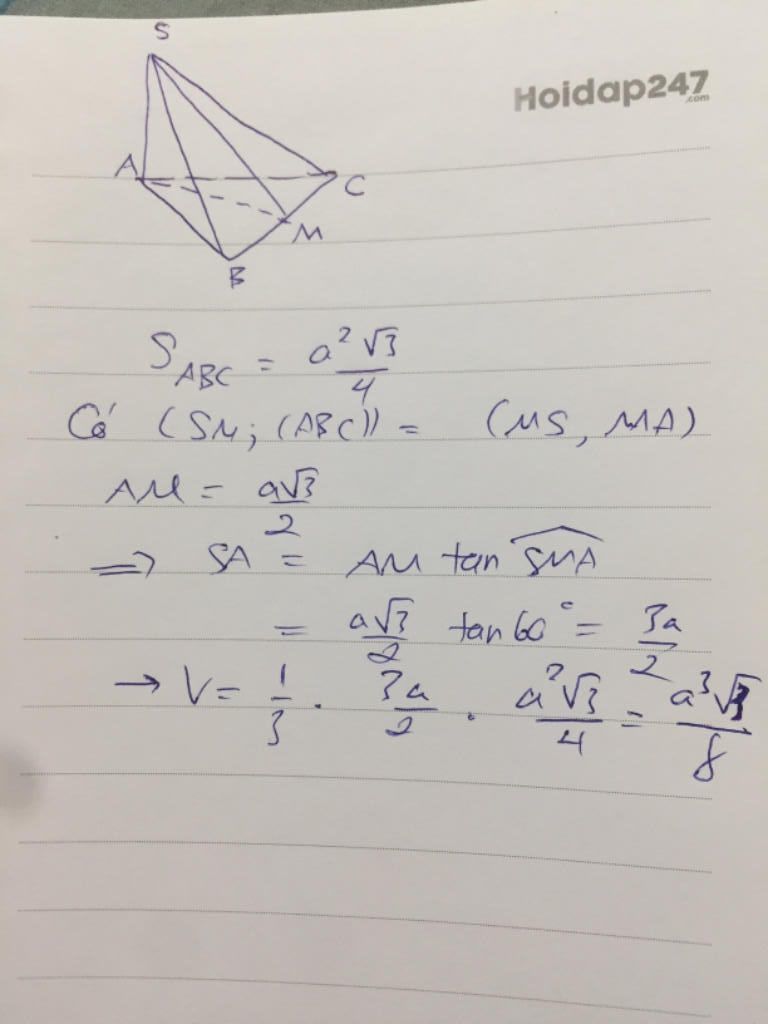 S
Hoidap247
.com
A
C
M
B
S_ABC = a²√3/4
Có (SM; (ABC)) = (MS, MA)
AM = a√3/2
⟹ SA = AM tan SMA
= a√3/2 tan 60° = 3a/2
→ V = 1/3 · 3a/2 · a²√3/4 = a³√3/8